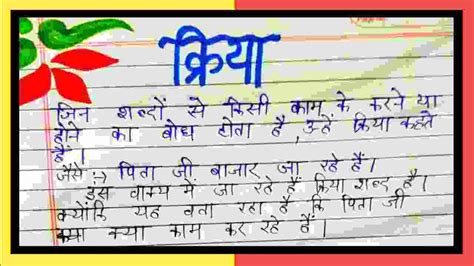 क्रिया
जिन शब्दों से किसी काम के करने या
होने का बोध होता है, उन्हें क्रिया कहते
हैं।
जैसे :→ पिता जी बाजार जा रहे हैं।
इस वाक्य में जा रहे हैं क्रिया शब्द है।
क्योंकि यह बता रहा है कि पिता जी
क्या काम कर रहे हैं।